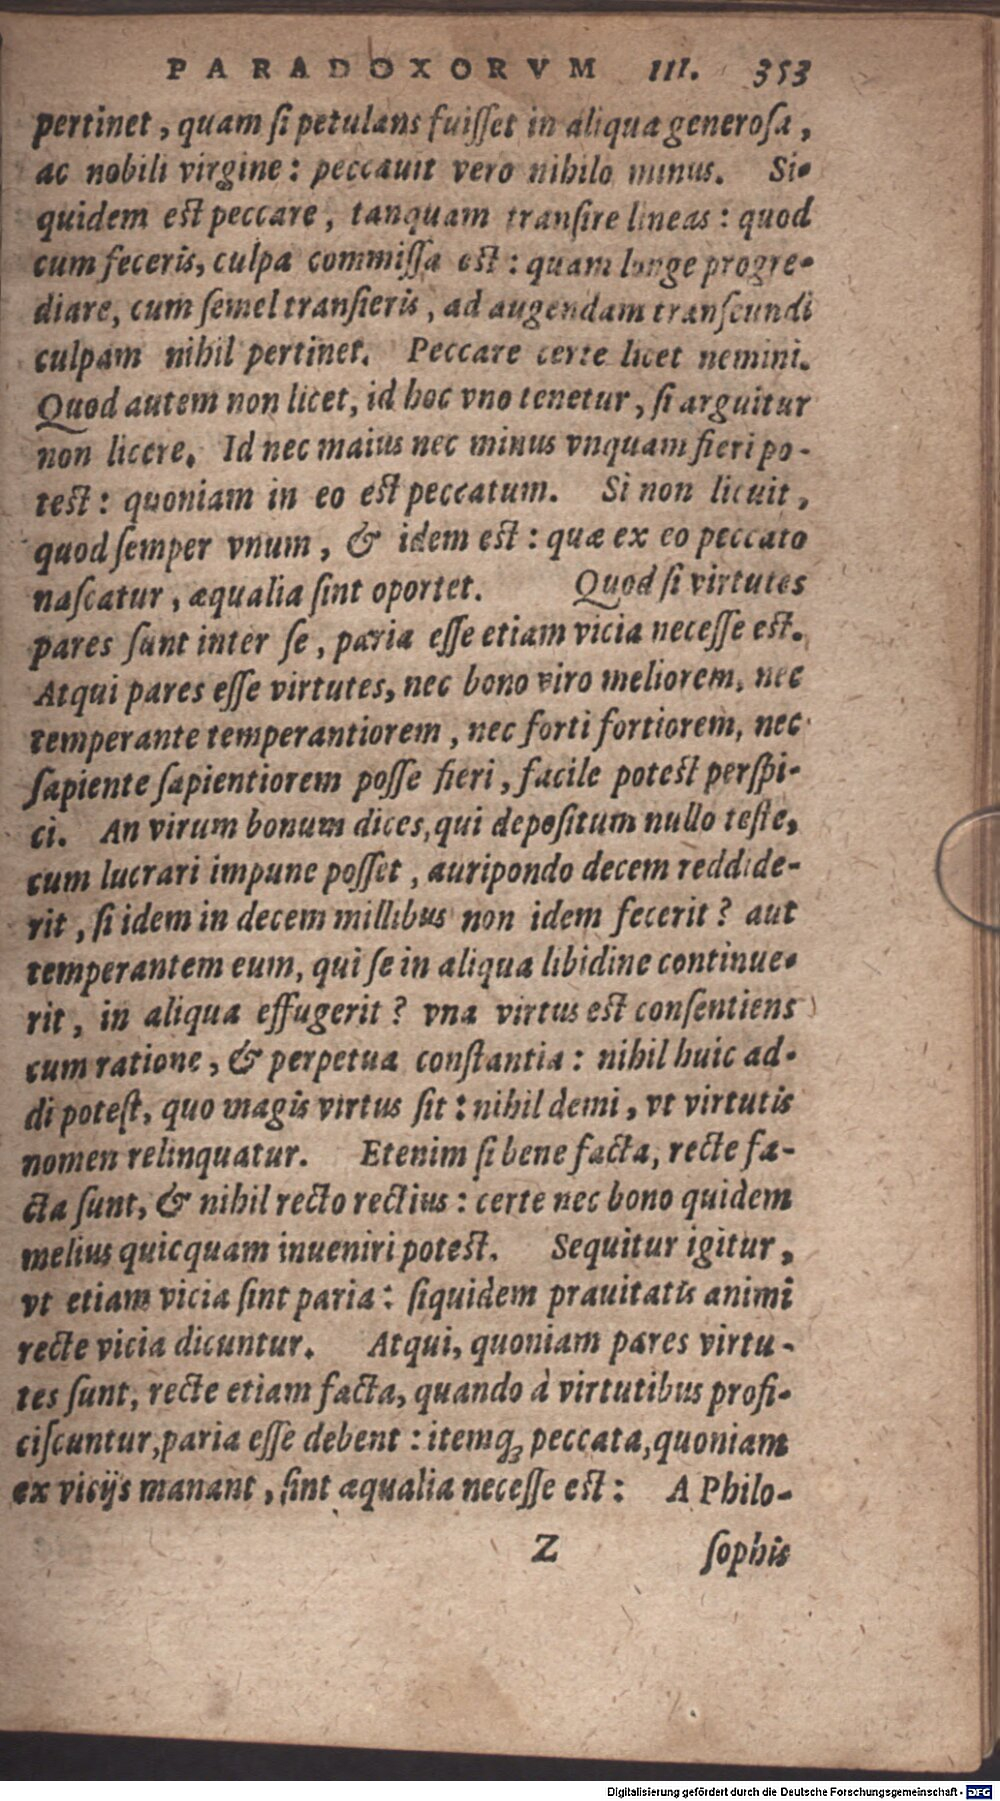 PARADOXORVM III. 353
pertinet, quam ſi petulans fuiſſet in aliqua generoſa,
ac nobili virgine: peccauit vero nihilo minus. Si-
quidem est peccare, tanquam tranſire lineas: quod
cum feceris, culpa commiſſa est: quam longe progre-
diare, cum ſemel tranſieris, ad augendam tranſeundi
culpam nihil pertinet. Peccare certe licet nemini.
Quod autem non licet, id hoc vno tenetur, ſi arguitur
non licere. Id nec maius nec minus vnquam fieri po-
test: quoniam in eo est peccatum. Si non licuit,
quod ſemper vnum, & idem est: quæ ex eo peccato
naſcatur, æqualia ſint oportet. Quod ſi virtutes
pares ſunt inter ſe, paria eſſe etiam vicia neceſſe est.
Atqui pares eſſe virtutes, nec bono viro meliorem, nec
temperante temperantiorem, nec forti fortiorem, nec
ſapiente ſapientiorem poſſe fieri, facile potest perſpi-
ci. An virum bonum dices, qui depoſitum nullo teſte,
cum lucrari impune poſſet, auripondo decem reddide-
rit, ſi idem in decem millibus non idem fecerit? aut
temperantem eum, qui ſe in aliqua libidine continue-
rit, in aliqua effugerit? vna virtus est conſentiens
cum ratione, & perpetua conſtantia: nihil huic ad-
di poteſt, quo magis virtus ſit: nihil demi, vt virtutis
nomen relinquatur. Etenim ſi bene facta, recte fa-
cta ſunt, & nihil recto rectius: certe nec bono quidem
melius quicquam inueniri potest. Sequitur igitur,
vt etiam vicia ſint paria: ſiquidem prauitatis animi
recte vicia dicuntur. Atqui, quoniam pares virtu-
tes ſunt, recte etiam facta, quando à virtutibus profi-
ciſcuntur, paria eſſe debent: itemq; peccata, quoniam
ex vicijs manant, ſint æqualia neceſſe est: A Philo-
Z ſophis
Digitalisierung gefördert durch die Deutsche Forschungsgemeinschaft - DFG